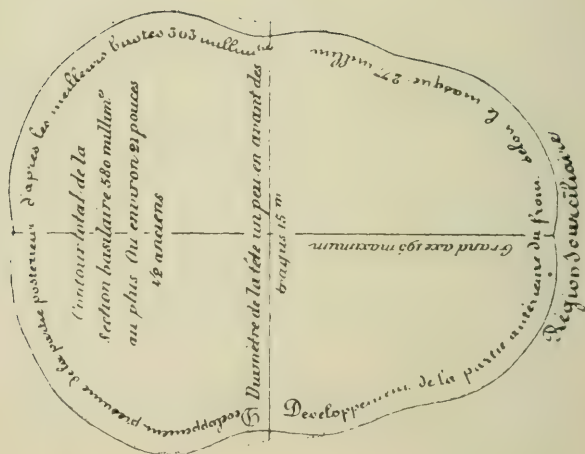 Developpement présumé de la partie posterieur d'après les meilleurs bustes 303 millim
Contour total de la
Section basilaire 580 millim^e
au plus Ou environ 21 pouces
1/2 anciens
Diamètre de la tête un peu en avant des
tragus 15 m
Grand axe 195 maximum
Developpement de la partie antérieure du front selon le masque 277 millim
Région Sourciliaire